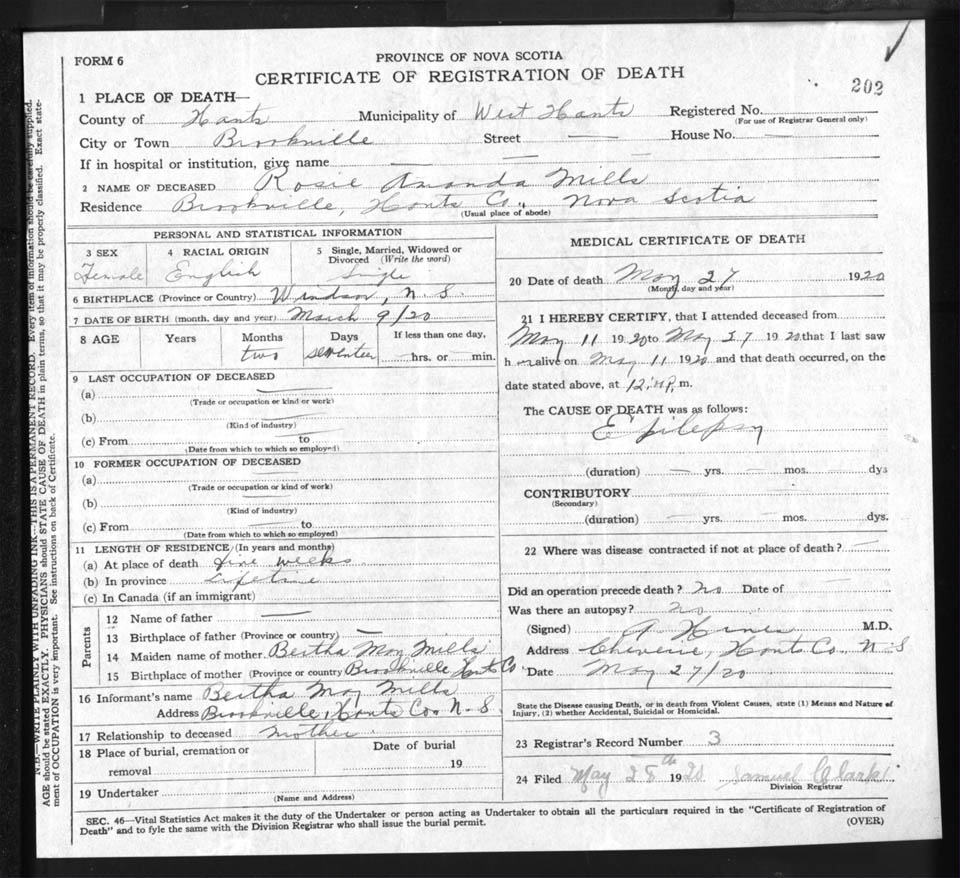 FORM 6
PROVINCE OF NOVA SCOTIA
CERTIFICATE OF REGISTRATION OF DEATH
202
1 PLACE OF DEATH—
County of Hants Municipality of West Hants Registered No.
(For use of Registrar General only)
City or Town Brookville Street — House No.
If in hospital or institution, give name — — —
2 NAME OF DECEASED Rosie Amanda Mills
Residence Brookville, Hants Co., Nova Scotia
(Usual place of abode)
PERSONAL AND STATISTICAL INFORMATION
3 SEX 4 RACIAL ORIGIN 5 Single, Married, Widowed or Divorced (Write the word)
Female English Single
6 BIRTHPLACE (Province or Country) Windsor, N. S
7 DATE OF BIRTH (month, day and year) March 9/20
8 AGE Years Months Days If less than one day,
two seventeen — hrs. or — min.
9 LAST OCCUPATION OF DECEASED
(a) —
(Trade or occupation or kind or work)
(b)
(Kind of industry)
(c) From — to
(Date from which to which so employed)
10 FORMER OCCUPATION OF DECEASED
(a) —
(Trade or occupation or kind of work)
(b) —
(Kind of industry)
(c) From — to
(Date from which to which so employed)
11 LENGTH OF RESIDENCE (In years and months)
(a) At place of death five weeks
(b) In province Lifetime
(c) In Canada (if an immigrant)
Parents
12 Name of father —
13 Birthplace of father (Province or country) —
14 Maiden name of mother Bertha May Mills
15 Birthplace of mother (Province or country) Brookville Hants Co
16 Informant's name Bertha May Mills
Address Brookville, Hants Co N. S.
17 Relationship to deceased mother
18 Place of burial, cremation or removal Date of burial 19
19 Undertaker
(Name and Address)
MEDICAL CERTIFICATE OF DEATH
20 Date of death May 27 1920
(Month, day and year)
21 I HEREBY CERTIFY, that I attended deceased from
May 11 1920 to May 27 1920 that I last saw
h er alive on May 11 1920 and that death occurred, on the
date stated above, at 12, m.
The CAUSE OF DEATH was as follows:
Epilepsy
(duration) — yrs. — mos. dys
CONTRIBUTORY
(Secondary)
(duration) — yrs. — mos. dys.
22 Where was disease contracted if not at place of death? —
Did an operation precede death? No Date of —
Was there an autopsy? No
(Signed) M.D.
Address Cheverie, Hants Co., N-S
Date May 27/20
State the Disease causing Death, or in death from Violent Causes, state (1) Means and Nature of
Injury, (2) whether Accidental, Suicidal or Homicidal.
23 Registrar's Record Number 3
24 Filed May 28th 1920 Samuel Clark
Division Registrar
SEC. 46—Vital Statistics Act makes it the duty of the Undertaker or person acting as Undertaker to obtain all the particulars required in the "Certificate of Registration of
Death" and to fyle the same with the Division Registrar who shall issue the burial permit. (OVER)
N.B.—WRITE PLAINLY WITH UNFADING INK—THIS IS A PERMANENT RECORD. Every item of information should be carefully supplied.
AGE should be stated EXACTLY. PHYSICIANS should STATE CAUSE OF DEATH in plain terms, so that it may be properly classified. Exact state-
ment of OCCUPATION is very important. See instructions on back of Certificate.